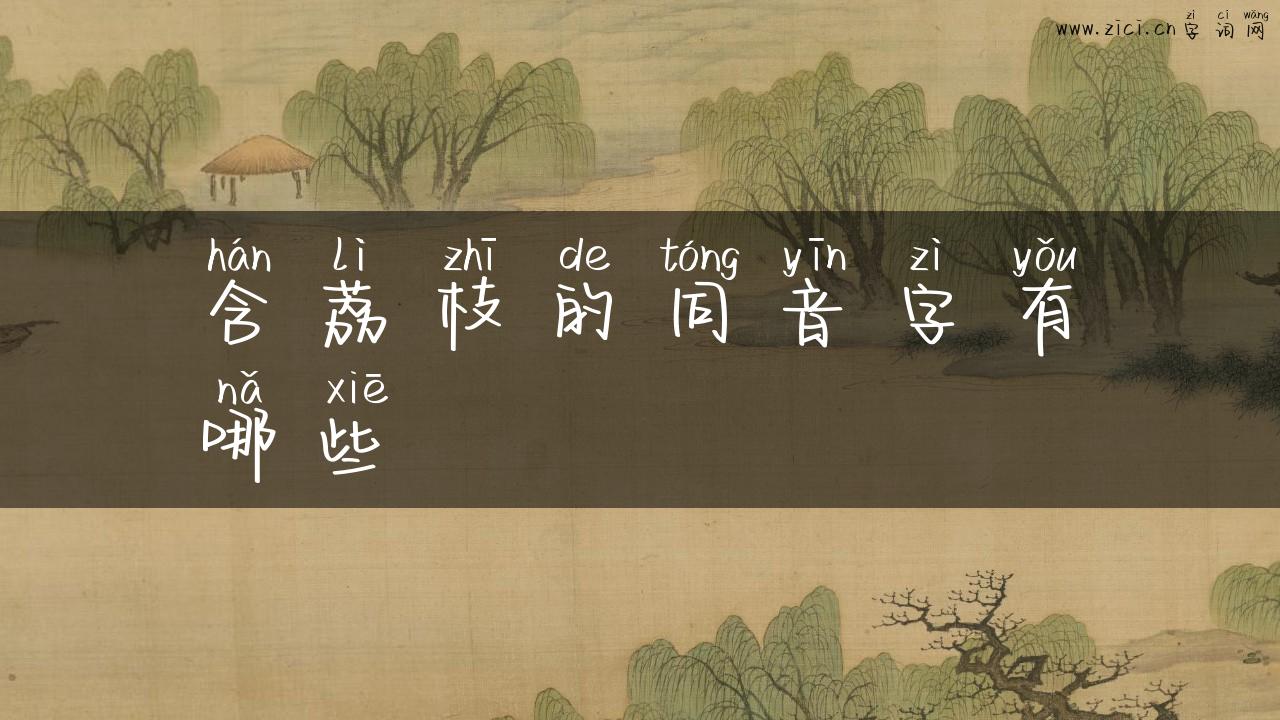 zì cí wǎng
www.zici.cn字词网
hán lì zhī de tóng yīn zì yǒu
含荔枝的同音字有
nǎ xiē
哪些